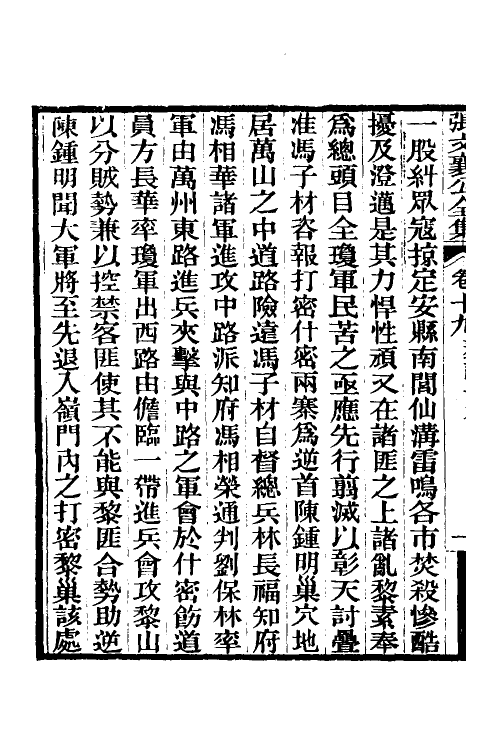 張文襄公全集 卷十九
一股糾眾寇掠定安縣南閭仙溝雷鳴各市焚殺慘酷
擾及澄邁是其力悍性頑又在諸匪之上諸亂黎素奉
爲總頭目全瓊軍民苦之亟應先行翦滅以彰天討疊
准馮子材咨報打密什密兩寨爲逆首陳鍾明巢穴地
居萬山之中道路險遠馮子材自督總兵林長福知府
馮相華諸軍進攻中路派知府馮相榮通判劉保林率
軍由萬州東路進兵夾擊與中路之軍會於什密飭道
員方長華率瓊軍出西路由儋臨一帶進兵會攻黎山
以分賊勢兼以控禁客匪使其不能與黎匪合勢助逆
陳鍾明聞大軍將至先退入嶺門內之打密黎巢該處